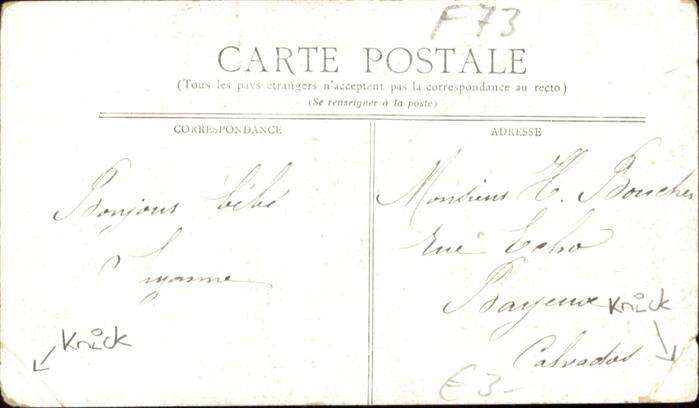 F73
CARTE POSTALE
(Tous les pays étrangers n'acceptent pas la correspondance au recto)
(Se renseigner à la poste)
CORRESPONDANCE
ADRESSE
Bonjour bébé
Suzanne
Monsieur H. Boucher
rue Echo
Bayeux
Calvados
Knick
Knick
€ 3-